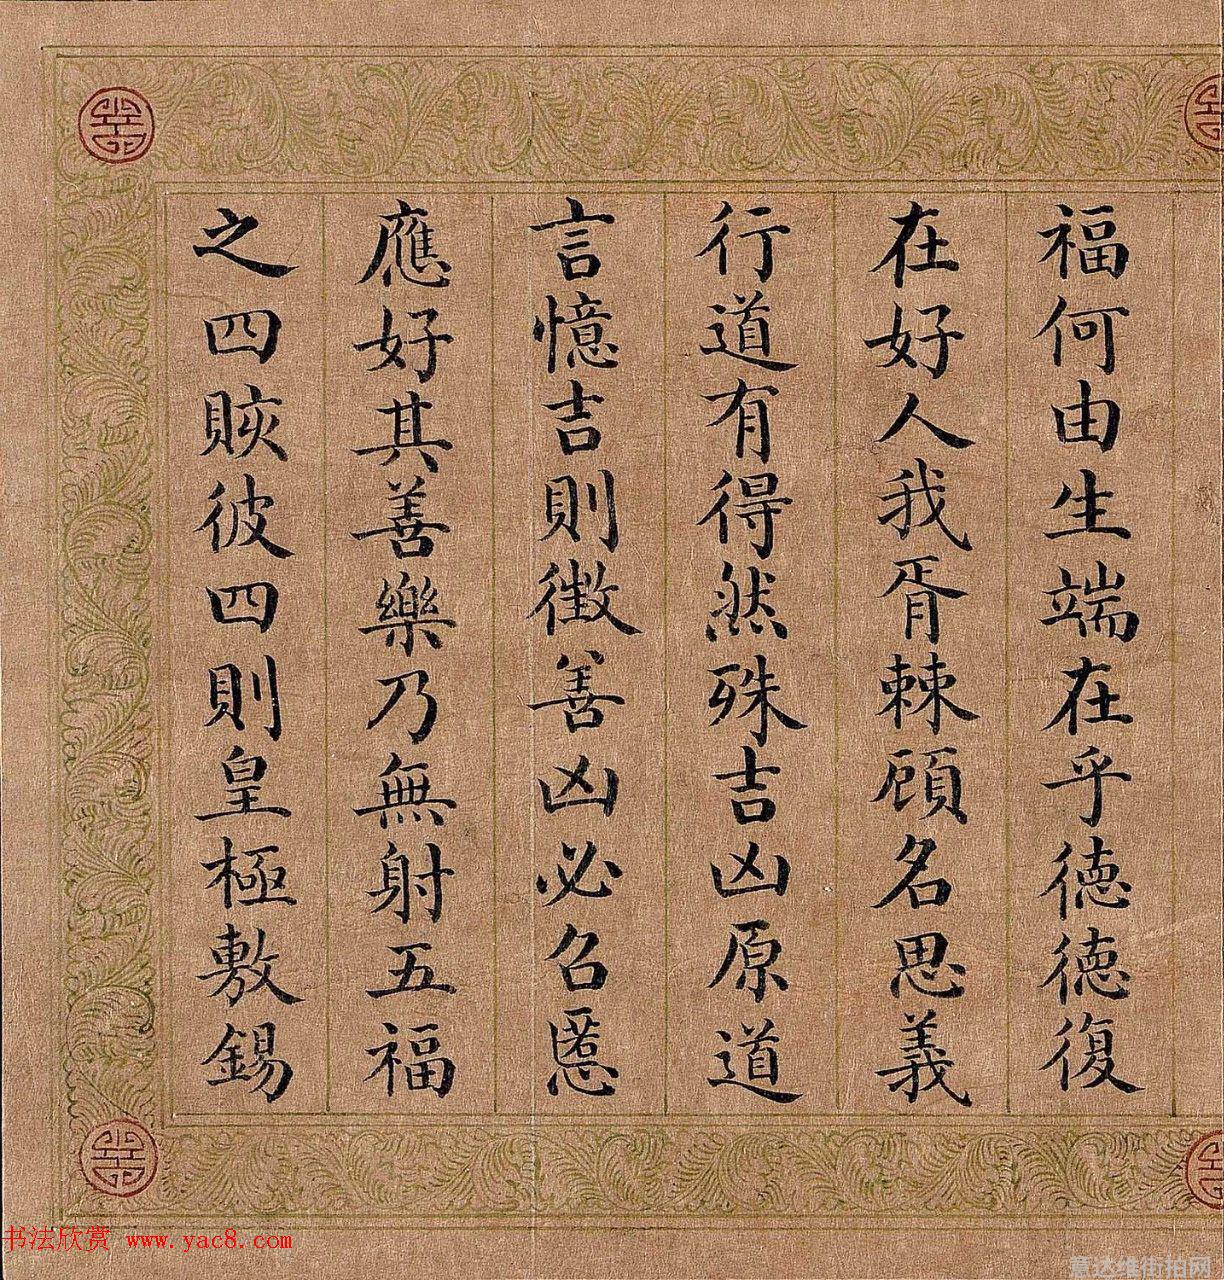 福何由生端在乎德德復
在好人我胥棘顧名思義
行道有得然殊吉凶原道
言憶吉則徴善凶必召慝
應好其善樂乃無射五福
之四賅彼四則皇極敷錫
书法欣赏 www.yac8.com
意达维街拍网